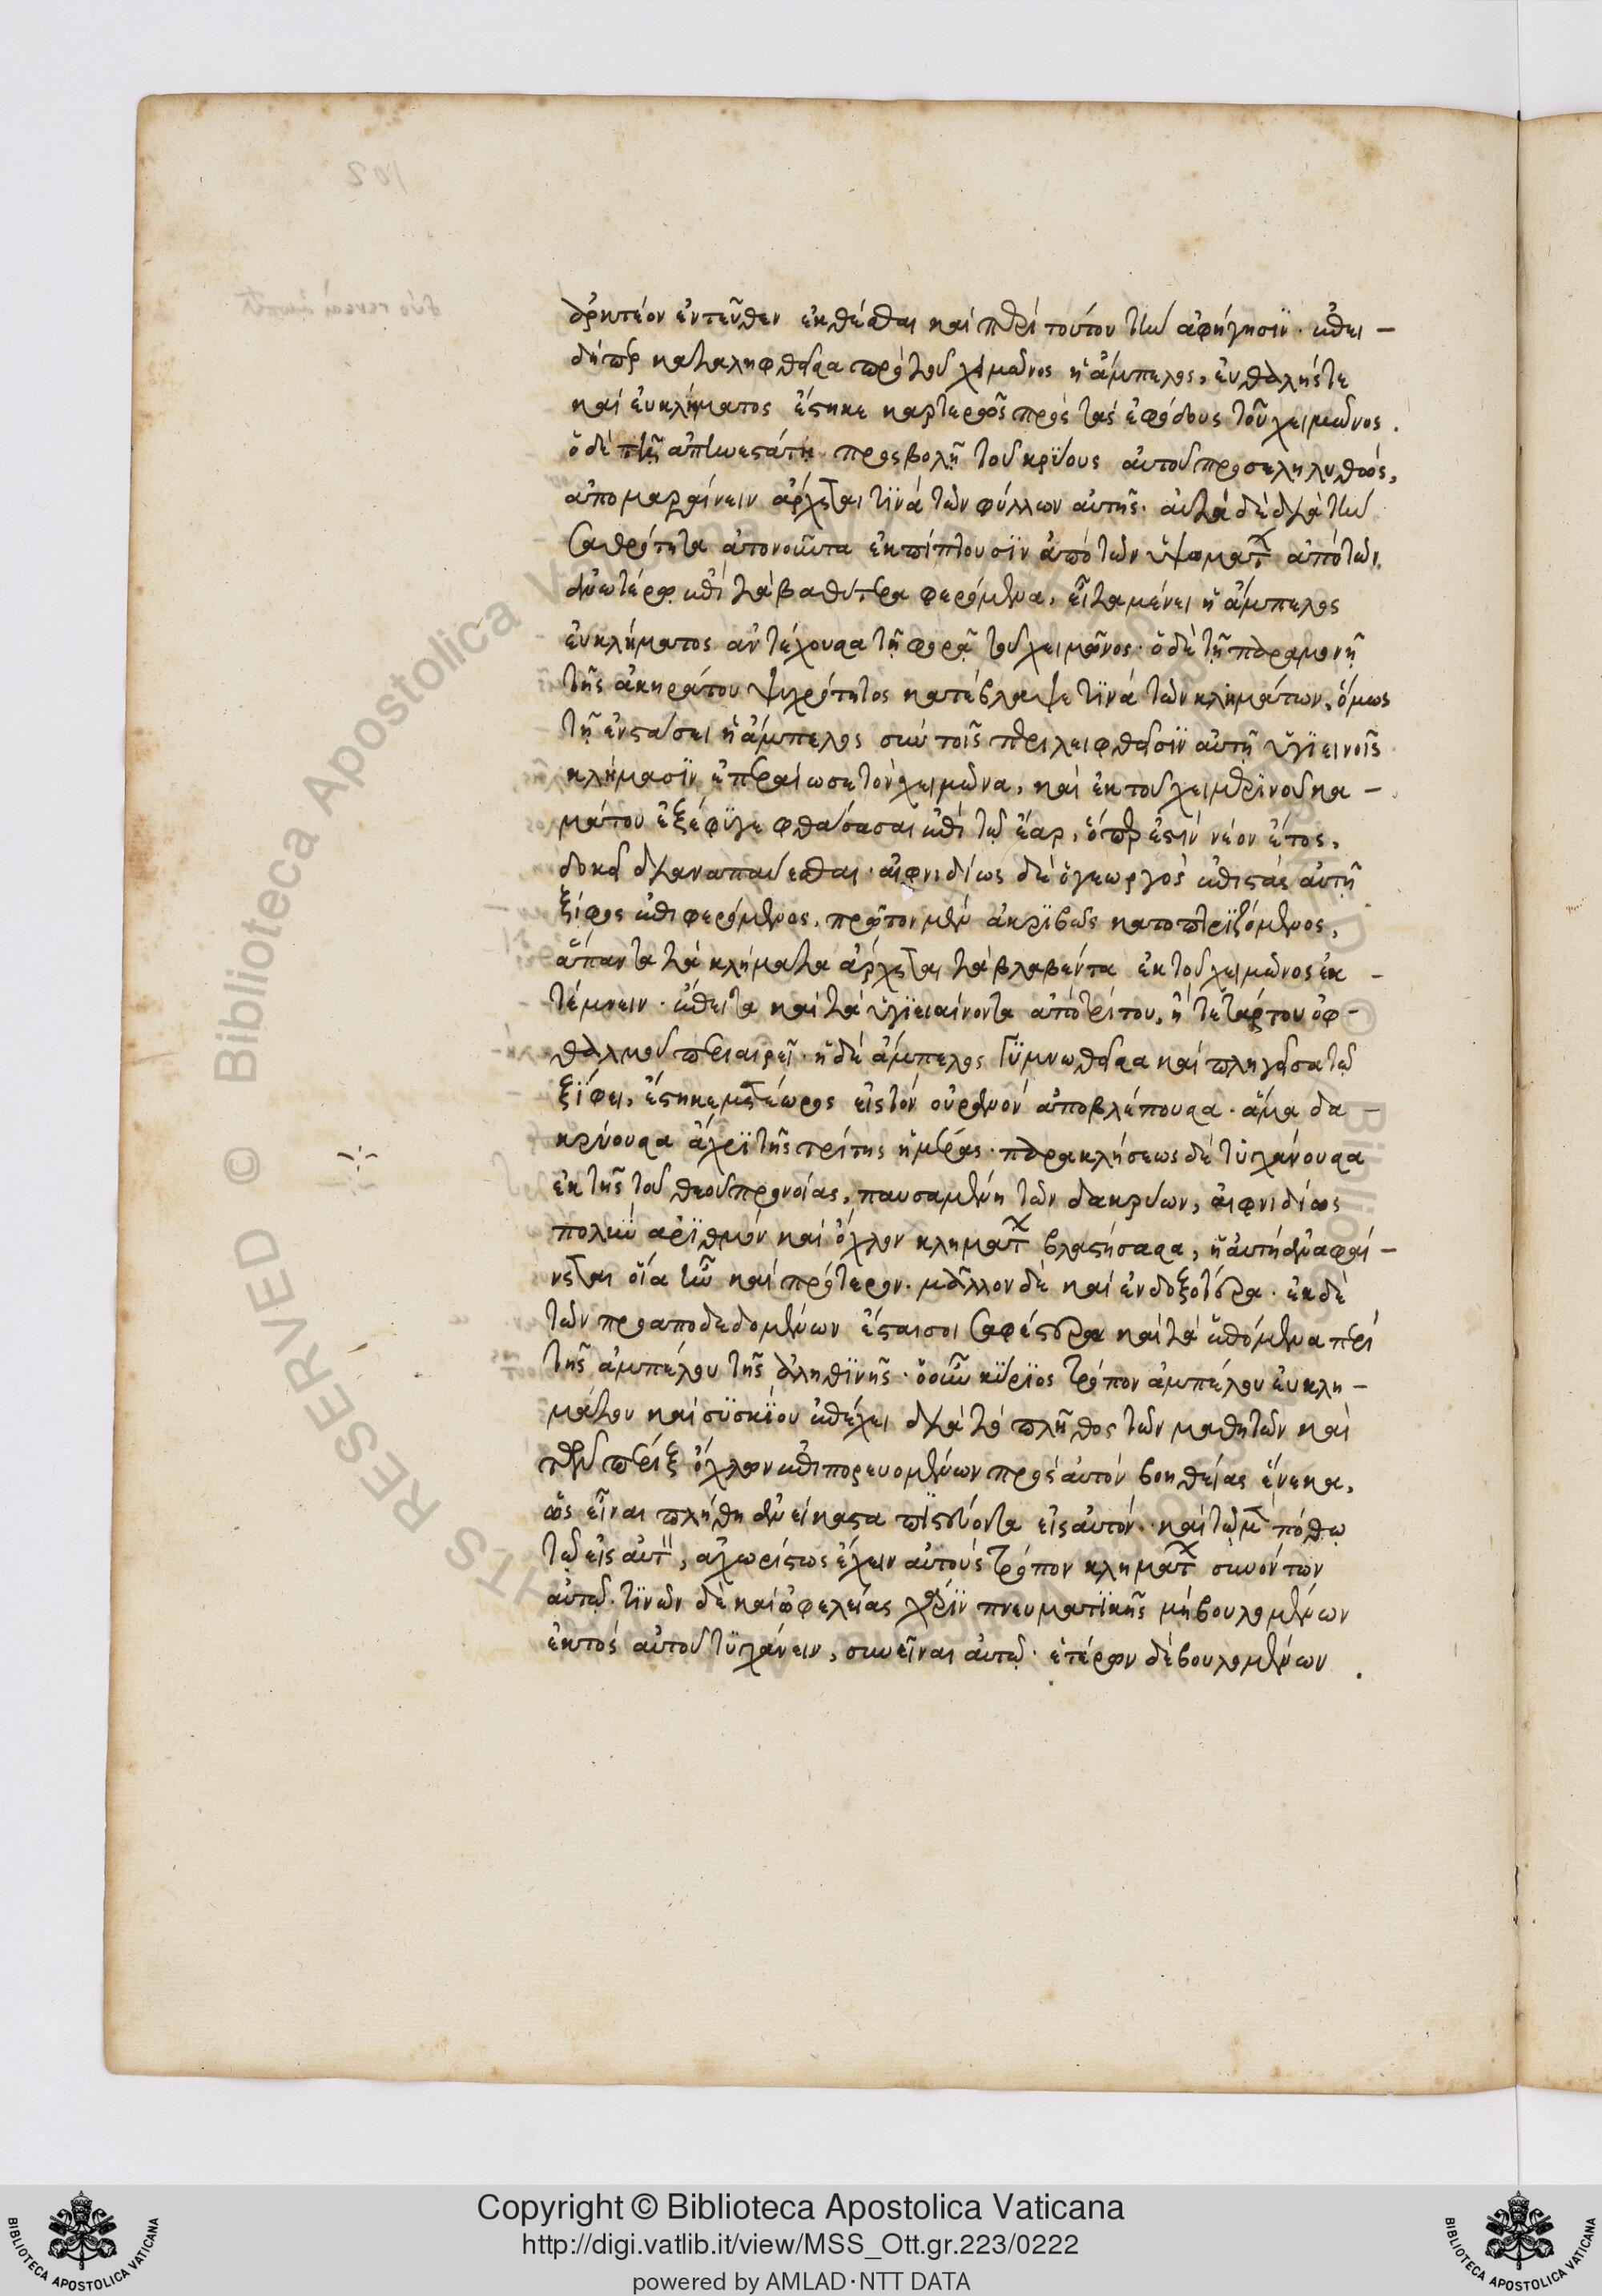 ἀρκτέον ἐντεῦθεν ἐκθέσθαι καὶ περὶ τούτου τὴν ἀφήγησϊν. ἐπει-
δήπερ καταληφθεῖσα πρὸ τοῦ χειμῶνος ἡ ἄμπελος, εὐθαλής τε
καὶ εὐκλήματος ἕστηκε καρτερῶς πρὸς τὰς ἐφόδους τοῦ χειμῶνος.
ὁ δὲ τῇ προσβολῇ τοῦ κρύους αὐτοῦ προσεληλυθὸς,
ἀπομαραίνειν ἄρχεται τϊνὰ τῶν φύλλων αὐτῆς. αὐτὰ δὲ διὰ τὴν
σαθρότητα ἀτονοῦντα ἐκπίπτουσϊν ἀπὸ τῶν ὑψωμάτων ἀπὸ τῶν
ἀνωτέρω ἐπὶ τὰ βαθύτερα φερόμενα, εἶτα μένει ἡ ἄμπελος
εὐκλήματος ἀντέχουσα τῇ φορᾷ τοῦ χειμῶνος. ὁ δὲ τῇ παραμονῇ
τῆς ἀκηράτου ψυχρότητος κατέβλαψε τϊνὰ τῶν κλημάτων, ὅμως
τῇ ἐνστάσει ἡ ἄμπελος σὺν τοῖς περιλειφθεῖσϊν αὐτῇ ὑγϊεινοῖς
κλήμασϊν ἐπεραίωσε τὸν χειμῶνα, καὶ ἐκ τοῦ χειμερϊνοῦ κα-
μάτου ἐξέφϋγε φθάσασαι ἐπὶ τῷ ἔαρ, ὅπερ ἐστὶν νέον ἔτος,
δοκεῖ διαναπαύεσθαι. αἰφνιδίως δὲ ὁ γεωργὸς ἐπιστὰς αὐτῇ
ξίφος ἐπιφερόμενος, πρῶτον μὲν ἀκρϊβῶς κατοπτρϊζόμενος,
ἅπαντα τὰ κλήματα ἄρχεται τὰ βλαβέντα ἐκ τοῦ χειμῶνος ἐκ-
τέμνειν. ἔπειτα καὶ τὰ ὑγϊειαίνοντα ἀπὸ τρίτου, ἢ τετάρτου ὀφ-
θαλμοῦ περιαιρεῖ. ἡ δὲ ἄμπελος γϋμνωθεῖσα καὶ πληγεῖσα τῷ
ξϊφει, ἕστηκε μετέωρος εἰς τὸν οὐρανὸν ἀποβλέπουσα. ἅμα δα-
κρύουσα ἄχρϊ τῆς τρίτης ἡμέρας. παρακλήσεως δὲ τυγχάνουσα
ἐκ τῆς τοῦ θεοῦ προνοίας, παυσαμένη τῶν δακρύων, αἰφνιδίως
πολὺν ἀρϊθμὸν καὶ ὄχλον κλημάτων βλαστήσασα, ἡ αὐτὴ ἀναφαί-
νεται οἵα ἦν καὶ πρότερον. μᾶλλον δὲ καὶ ἐνδοξοτέρα. ἐκ δὲ
τῶν προαποδεδομένων ἔσται σοι σαφέστερα καὶ τὰ ἑπόμενα περὶ
τῆς ἀμπέλου τῆς ἀληθϊνῆς. ὁ οὖν κύρϊος τρόπον ἀμπέλου εὐκλη-
μάτου καὶ σϋσκϊου ἐπέχει διὰ τὸ πλῆθος τῶν μαθητῶν καὶ
τῶν πέριξ ὄχλων ἐπιπορευομένων πρὸς αὐτὸν βοηθείας ἕνεκα,
ὡς εἶναι πλήθη ἀνείκαστα πϊστεύοντα εἰς αὐτόν. καὶ τῷ πόθῳ
τῷ εἰς αὐτ, ἀχωρίστως ἔχειν αὐτοὺς τρόπον κλημάτων συνόντων
αὐτῷ. τϊνῶν δὲ καὶ ὠφελείας χάρϊν πνευματϊκῆς μὴ βουλομένων
ἐκτὸς αὐτοῦ τϋγχάνειν, συνεῖναι αὐτῷ. ἑτέρων δὲ βουλομένων
Copyright © Biblioteca Apostolica Vaticana
http://digi.vatlib.it/view/MSS_Ott.gr.223/0222
powered by AMLAD·NTT DATA
BIBLIOTECA APOSTOLICA VATICANA
BIBLIOTECA APOSTOLICA VATICANA